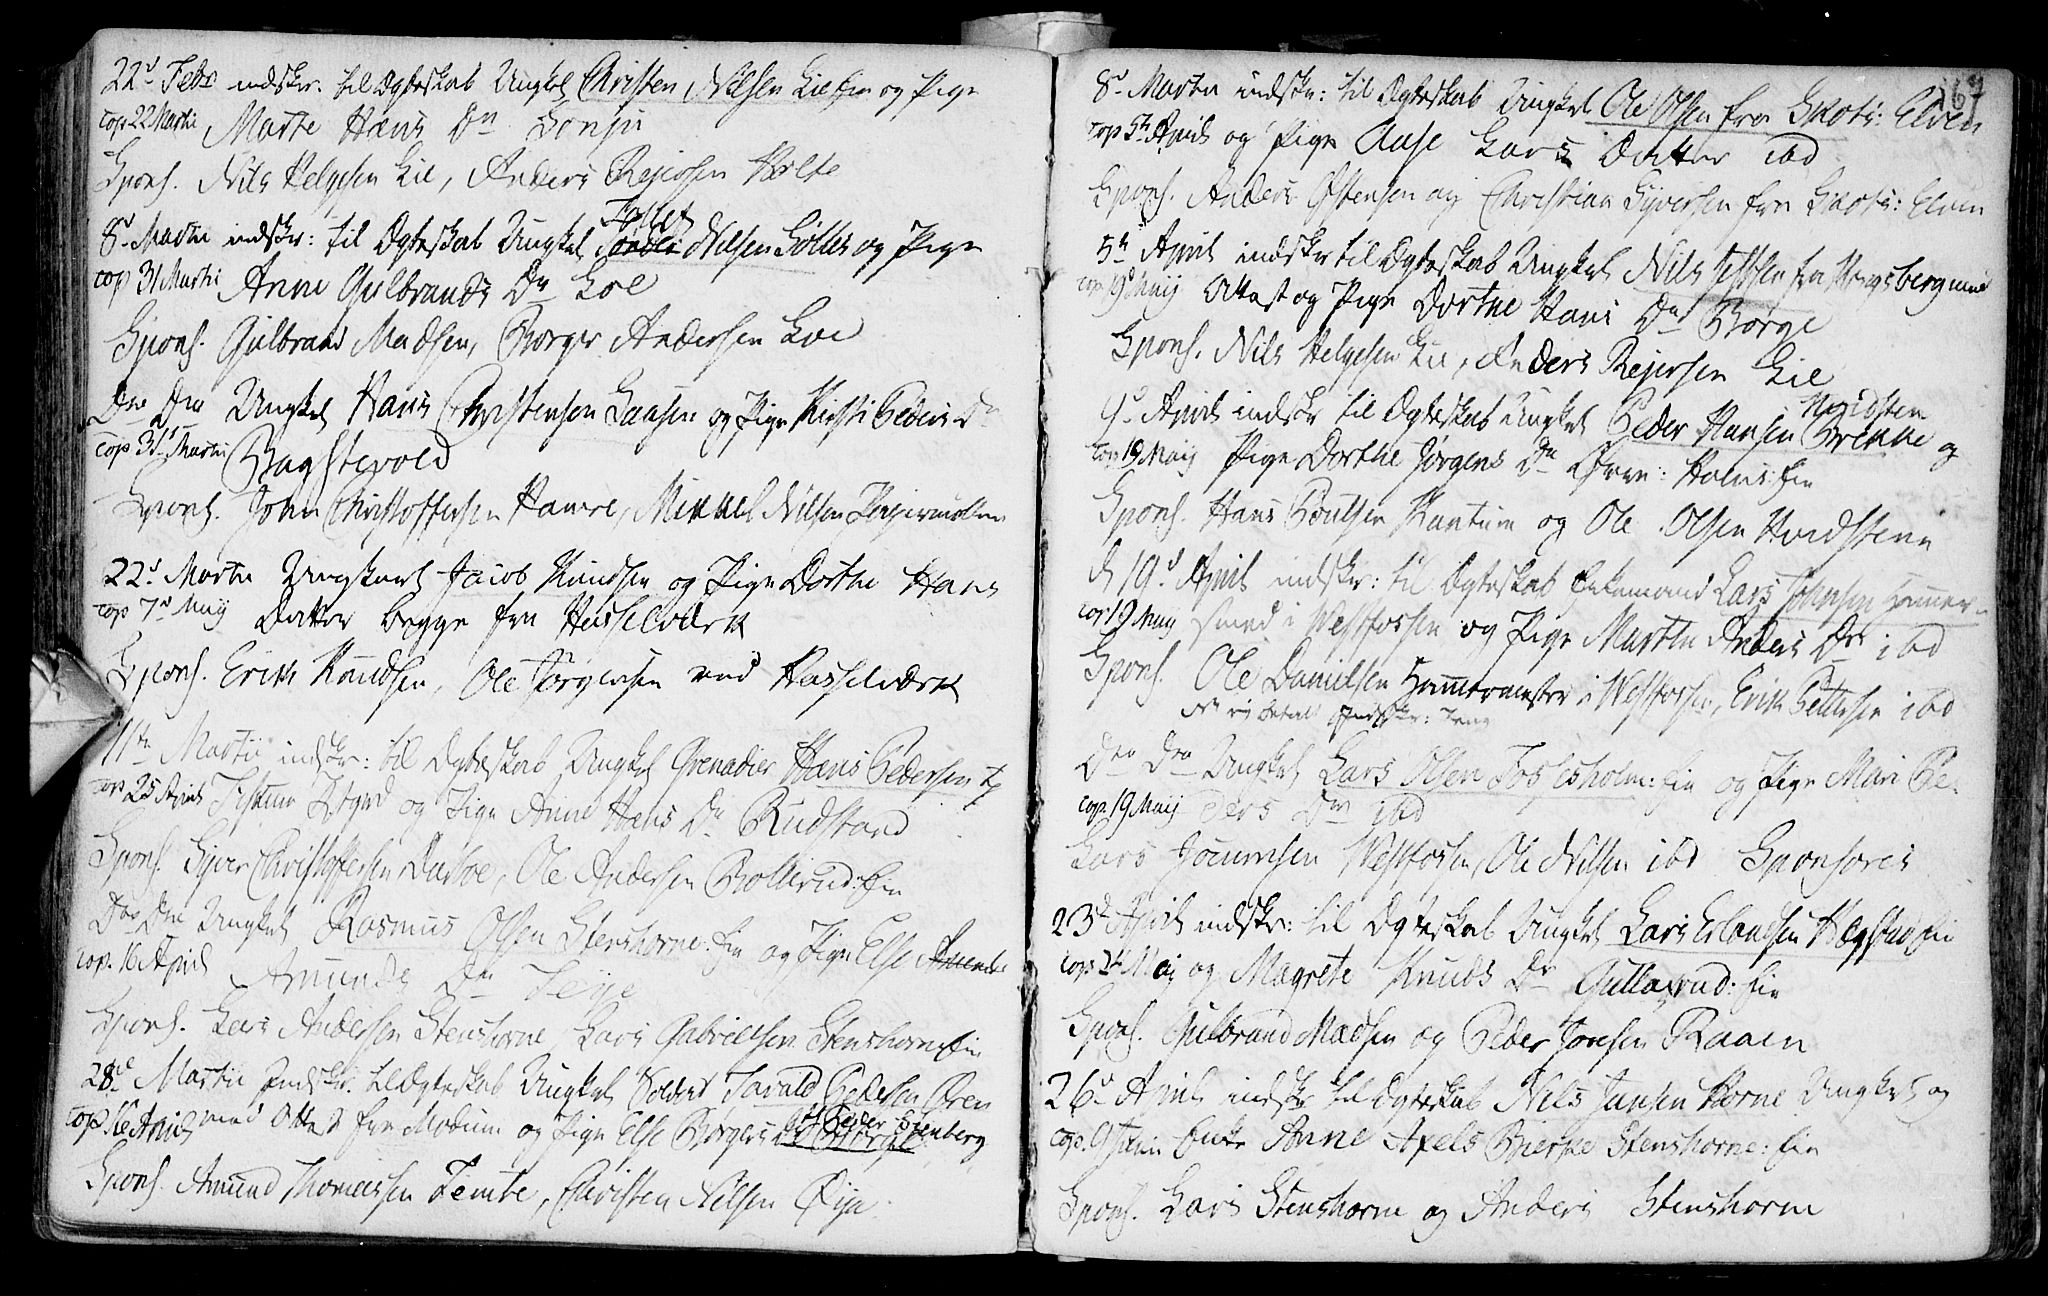 22d Febr indskr: til Ægteskab Ungkel Christen Nilsen Lie Eie og Pige
cop 22 Martii Marte Hans Dn
Spons. Nils Helgesen Lie, Anders Rejersen Holte
8d Martii indskr: til Ægteskab Ungkel Tollef Nilsen og Pige
cop 31 Martii Anne Gulbrands Dn Loe
Spons. Gulbrand Madsen, Børger Andersen Loe
Dno Dno Ungkel Hans Christensen og Pige Kirsti Peders Dn
cop 31 Martii Bagstevold
Spons. John Christoffersen Hamre, Mikkel Nilsen
22d Martii Ungkarl Jacob Knudsen og Pige Dorthe Hans
cop 7d Maij Datter begge fra Hasselværk
Spons. Erik Knudsen, Ole Jørgensen ved Hasselværk
11te Martii indskr: til Ægteskab Ungkel Grenadier Hans Pedersen
cop 25 April og Pige Anne Hans Dn Rudstand
Spons. Syver Christoffersen Darboe, Ole Andersen Bollerud: Eie
Dno Dno Ungkel Rasmus Olsen Stenshorne: Eie og Pige Else
cop. 16 April Amunds Dn Teije
Spons. Lars Andersen Stenshorne, Lars Gabrielsen Stenshorne Eie
28d Martii Indskr. til Ægteskab Ungkel Soldat Tarald Pedersen Øren
cop 16 April med Attest fra Modum og Pige Else Børgers Dn
Spons. Amund Thomessen Temte, Christen Nilsen Øija
167
8d Martii indskr: til Ægteskab Ungkel Ole Olsen fra Skots: Elven
cop 5te April og Pige Aase Lars Datter ibd
Spons. Anders Østensen og Christian Syversen fra Skots: Elven
5te April indskr til Ægteskab Ungkel Nils Jepsen fra Kongsberg med
cop 19d Maij Attest og Pige Dorthe Hans Dn Børge
Spons. Nils Helgesen Lie, Anders Rejersen Lie
9d April indskr til Ægteskab Ungkel Peder Hansen Brekke og
cop 19 Maij Pige Dorthe Jørgens Dn Holms: Eie
Spons. Hans Poulsen og Ole Olsen Hvidsteen
d 19d April indskr: til Ægteskab Enkemand Lars Johnsen Hammer-
cop 19 Maij smed i Westfossen og Pige Marthe Anders Dn ibd
Spons. Ole Danielsen Hammermester i Westfossen, Erik Pettersen ibd
betalt Indskr: Penge
Dno Dno Ungkel Lars Olsen Fossesholm: Eie og Pige Mari Pe-
cop. 19 Maij ders Dn ibd
Lars Jocumsen Westfossen, Ole Nilsen ibd Sponsores
23d April indskr: til Ægteskab Ungkel Lars Erlandsen Hægstad Eie
cop 24 Maij og Magrete Knuds Dn Gullagrud: Eie
Spons. Gulbrand Madsen og Peder Jonsen Raaen
26d April indskr til Ægteskab Nils Jansen Horne Ungkel og
cop. 9 Junii Enke Anne Axels Bierke Stenshorne: Eie
Spons. Lars Stenshorne og Anders Stenshorne